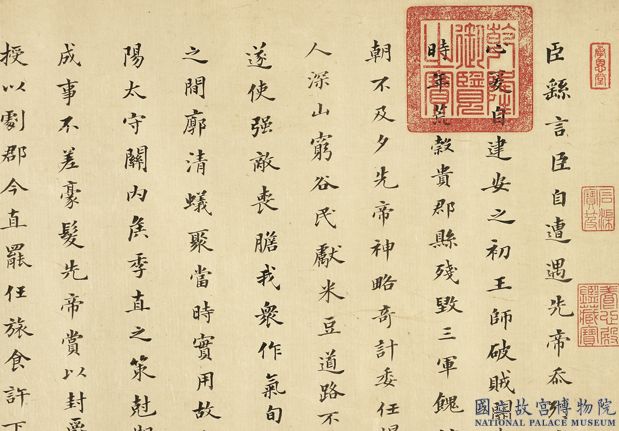 臣繇言臣自遭遇先帝忝列
心爰自建安之初王師破賊關
時年荒穀貴郡縣殘毀三軍餽
朝不及夕先帝神略奇計委任得
人深山窮谷民獻米豆道路不
遂使强敵喪膽我衆作氣旬
之間廓清蟻聚當時實用故
陽太守關内侯季直之策尅期
成事不差豪髮先帝賞以封爵
授以劇郡今直罷任旅食許下
乾隆御覽之寶
石渠寶笈
養心殿鑑藏寶
國立故宮博物院
NATIONAL PALACE MUSEUM